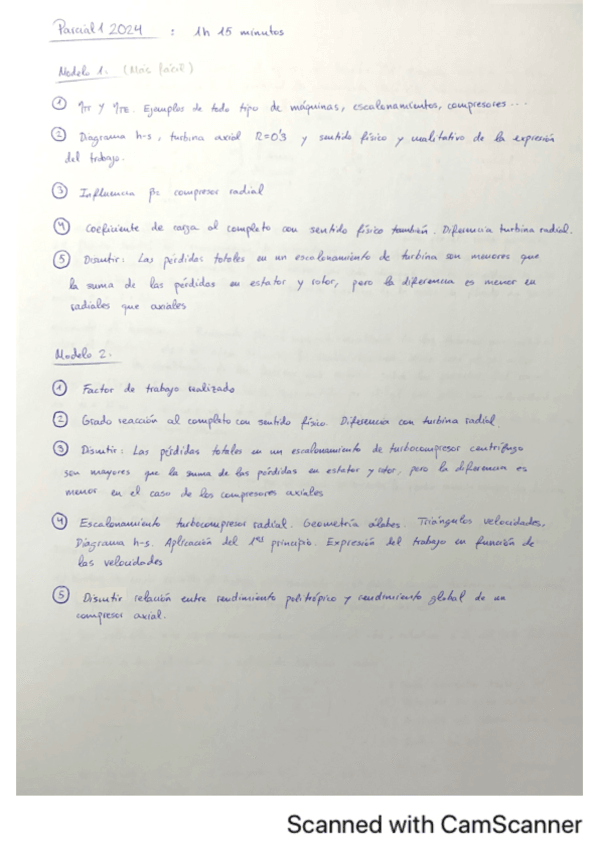 Parcial 1 2024 : 1h 15 minutos
Modelo 1. (Más fácil)
① ηTT y ηTE. Ejemplos de todo tipo de máquinas, escalonamientos, compresores...
② Diagrama h-s, turbina axial R=0'3 y sentido físico y cualitativo de la expresión
del trabajo.
③ Influencia β2 compresor radial
④ Coeficiente de carga al completo con sentido físico también. Diferencia turbina radial.
⑤ Discutir: Las pérdidas totales en un escalonamiento de turbina son menores que
la suma de las pérdidas en estator y rotor, pero la diferencia es menor en
radiales que axiales
Modelo 2.
① Factor de trabajo realizado
② Grado reacción al completo con sentido físico. Diferencia con turbina radial.
③ Discutir: Las pérdidas totales en un escalonamiento de turbocompresor centrífugo
son mayores que la suma de las pérdidas en estator y rotor, pero la diferencia es
menor en el caso de los compresores axiales
④ Escalonamiento turbocompresor radial. Geometría álabes. Triángulos velocidades.
Diagrama h-s. Aplicación del 1er principio. Expresión del trabajo en función de
las velocidades
⑤ Discutir relación entre rendimiento politrópico y rendimiento global de un
compresor axial.
Scanned with CamScanner